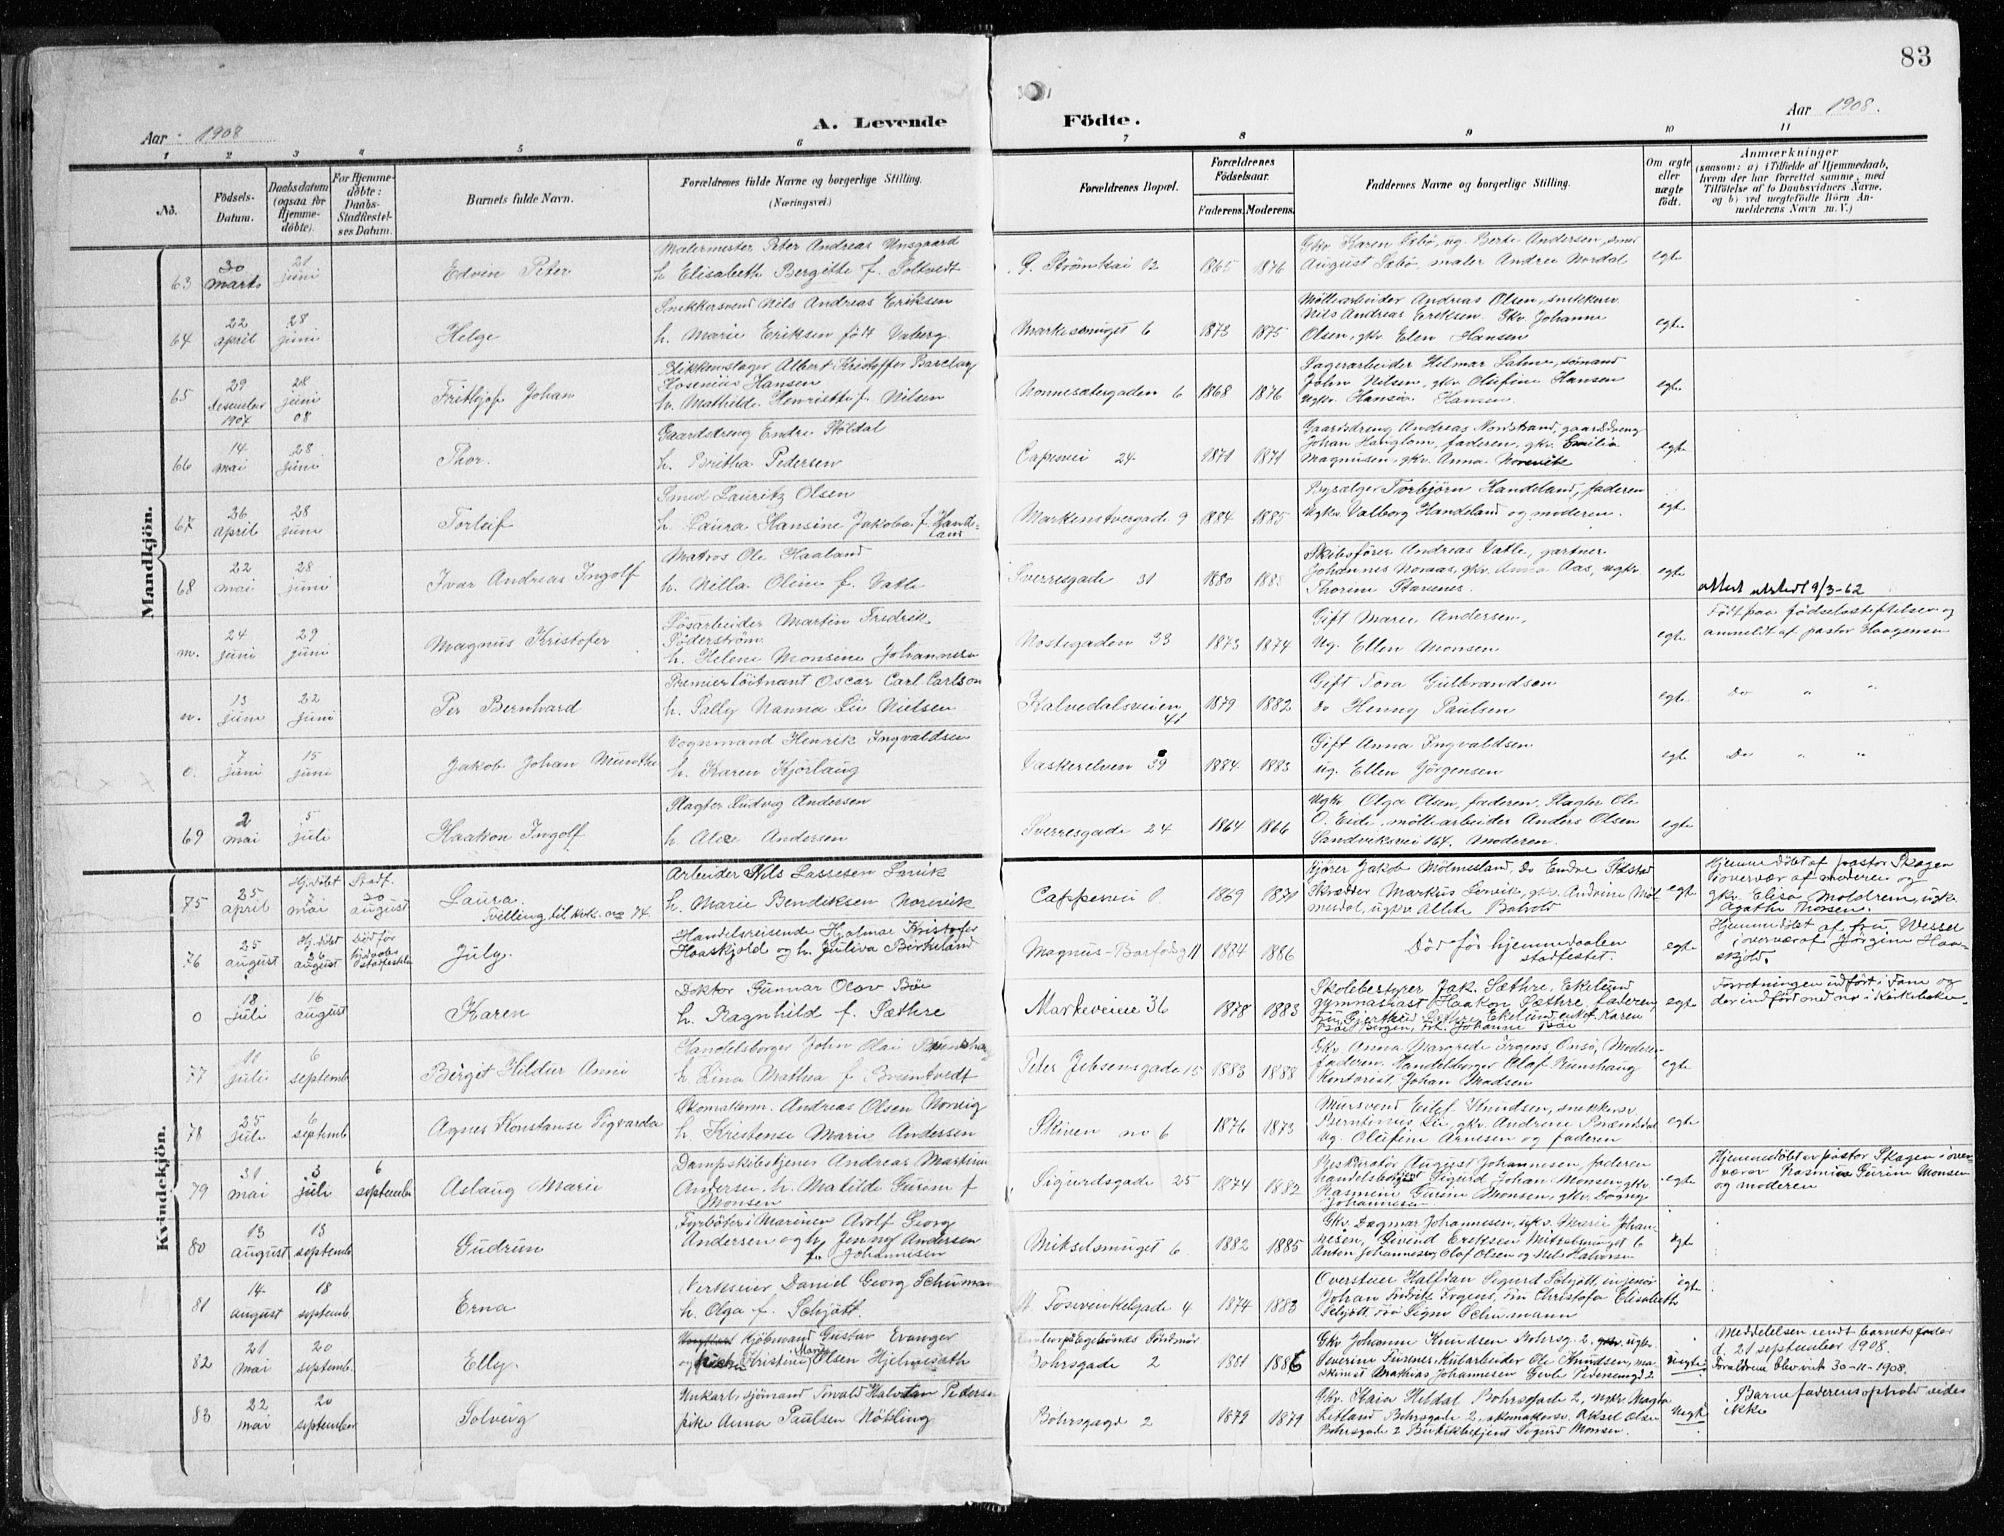 83
Aar 1908
A. Levende
Födte.
Aar 1908.
1 2 3 4 5 6 7 8 9 10 11
No.
Födsels-Datum.
Daabsdatum (ogsaa for Hjemmedöbte).
For Hjemmedöbte: Daabs-Stadfestelses Datum.
Barnets fulde Navn.
Forældrenes fulde Navne og borgerlige Stilling.
(Næringsvei.)
Forældrenes Bopæl.
Forældrenes Födselsaar.
Faderens. Moderens.
Faddernes Navne og borgerlige Stilling.
Om ægte eller uægte födt.
Anmærkninger
(saasom: a) i Tilfælde af Hjemmedaab, hvem der har forrettet samme, med Tilföielse af to Daabsvidners Navne, og b) ved uegtefödte Börn Anmelderens Navn m. V.)
Mandkjön.
63 30 marts 21 juni Edvin Peter
Malermester Peter Andreas
h. Elisabeth Bergitte f. Soltvedt
C. Strömkai 12 1865 1876
Gkv Karen Sæbö, ug. Berte Andersen, smed
August Sæbö, maler Andrea Nordal
egte
64 22 april 28 juni Helge
Snekkersvend Nils Andreas Eriksen
h. Marie Eriksen født Vaberg
Markesmuget 6 1873 1875
Möllearbeider Andreas Olsen, snekkersv.
Nils Andreas Eriksen. Gkv Johanne
Olsen, gkv Elen Hansen
egte
65 29 desember 1907 28 juni 08 Frithjof Johan
Blikkenslager Albert Kristoffer Barclay
Hosenius Hansen
h. Mathilde Henriette f. Nilsen
Nonnesætergaden 6 1868 1876
Lagerarbeider Helmar Salme, sömand
John Nilsen, gkv Olufine Hansen
Hansen.
egte
66 14 mai 28 juni Thor.
Gaardsdreng Endre Stöldal
h. Britha Pedersen
Capesvei 24 1871 1871
Gaardsdreng Andreas Nordstrand, gaardsdreng
Johan Hanglom, faderen, gkv. Emilie
Magnusen, gkv. Anna Norevik
egte
67 26 april 28 juni Torleif
Smed Lauritz Olsen
h. Laura Hansine Jakoba f. Handeland
Markenstvergade 9 1884 1885
Bysælger Torbjörn Handeland, faderen
Ugkv. Valborg Handeland og moderen.
egte
68 22 mai 28 juni Ivar Andreas Ingolf
Matros Ole Haaland
h. Nilla Oline f. Vatle
Sverresgade 31 1880 1888
Skibsförer Andreas Vatle, gartner
Johannes Noraas, gkv. Anna Aas, ugkv
Thorine
egte
attest utstedt 9/3-62
m. 24 juni 29 juni Magnus Kristofer
Lösarbeider Martin Fredrik
Söderström
h. Helene Monsine Johannesen
Nostegaden 33 1873 1874
Gift Maren Andersen,
Ug. Ellen Monsen
egte
Födt paa födselsstiftelsen og
anmeldt af pastor Haagensen
n. 13 juni 22 juni Per Bernhard
Premierlöitnant Oscar Carl Carlson
h. Sally Nanna Lie Nielsen
Kalvedalsveien 41 1879 1882
Gift Tora Gulbrandsen
Do Henny Paulsen
egte
Do " "
o. 7 juni 15 juni Jakob Johan Munthe
Vognmand Henrik Ingvaldsen
h. Karen Kjörlaug
Vaskerelven 39 1884 1883
Gift Anna Ingvaldsen
ug. Ellen Jörgensen
egte
Do " "
69 2 mai 5 juli Haakon Ingolf
Slagter Ludvig Andersen
h. Alee Andersen
Sverresgade 24 1864 1866
Ugkv Olga Olsen, faderen, Slagter Ole
O. Eide, möllearbeider Anders Olsen
Sandviksvei 164. Moderen.
egte
Kvindekjön.
75 25 april Hj. döbt 7 mai Stadf. 30 august Laura
Tvilling til kvk. no 74.
Arbeider Nils Lassesen
h. Marie Bendiksen Norevik
Cappesvei 1869 1871
Kjörer Jakob Mölmesland, Do Endre
Skrædder Markus Lenvik, gkv. Andrine
ugkv. Alida
egte
Hjemmedöbt af pastor Skagen
i overvær af moderen og
gkv. Elisa Moldrem, ugkv.
Agathe Monsen.
76 25 august Hj. döbt 26 august Död för hj.daabs stadfestelse July.
Handelsreisende Hjalmar Kristofer
Haaskjold og h. Juliva Birkeland
Magnus-Barfodsg 11 1884 1886
Död för hjemmedaaben
stadfestet.
egte
Hjemmedöbt af fru Wessel
i overvær af Jörgine Haaskjold.
o 18 juli 16 august Karen
Doktor Gunnar Olav Böe
h. Ragnhild f. Sæthre
Markeveien 36 1878 1883
Skolebestyrer Jak. Sæthre, Ekelund
gymnasiast Haakon Sæthre, faderen,
Fru Gjertrud Sæthre, Ekelund, enkef. Karen
Böe, Bergen, Frk. Johanne Böe
egte
Forretningen udfört i Fane og
der indfört med no i Kirkeboken
77 11 juli 6 septemb Birgit Hildur Anni
Handelsborger John Olai Runshaug
h. Lina Mathea f. Bruntvedt
Peter Jebsensgade 15 1883 1888
Gkv. Anna Margrede Irgens, Onsö, Moderen
faderen. Handelsborger Olaf Runshaug
Kontorist, Johan Madsen
egte
78 25 juli 6 septemb Agnes Konstanse Sigvarda
Skomakerm. Andreas Olsen Norvig
h. Kristense Marie Andersen
Skiven no 6 1876 1873
Mursvend Eilef Knudsen, snekkersv.
Berntinus Lie, gkv Andrine
ug. Olufine Arnesen og faderen
egte
79 31 mai 3 juli 6 september Aslaug Marie
Dampskibstjener Andreas Martin
Andersen, h. Matilde Gurine f
Monsen
Sigurdsgade 25 1874 1882
Reskuratör August Johannesen, faderen
handelsborger Sigurd Johan Monsen, gkv.
Rasmine Gurine Monsen, gkv. Dagny
Johannesen
egte
Hjemmedöbt av pastor Skagen i overværav Rasmine Gurine Monsen
og moderen
80 13 august 13 septemb Gudrun
Fyrböter i Marinen Adolf Georg
Andersen og h. Jenny Andersen
f. Johannesen
Mikselsmuget 6 1882 1885
Gkv. Dagmar Johannesen, ugkv. Marie Johannesen, Eivind Eriksen Mikselsmuget 6
Anton Johannesen, Olof Olsen og Nils Halvorsen
egte
81 14 august 18 septemb. Erna
Verkseier Daniel Georg Schumann
h. Olga f. Schjött
St. Torivinkelgade 4 1874 1883
Overstuer Halfdan Sigurd Schjött, ingeniör
Johan Fredrik Irgens, Fru Christofa Elisabeth
Schjött, Fru Signe Schumann
egte
82 21 mai 20 septemb. Elly.
Kjöbmand Gustav Evanger
og pike Kristine Marie Olsen Hjelmesæth
Böhrsgade 2 1881 1886
Gkv Johanne Knudsen Böhrsg. 2, ugkv.
Severine Kularbeider Ole Knudsen, maskinist Mathias Johannesen
uegte
Meddelelsen sendt barnets fader
d. 21 september 1908.
Foraldrene 30-11-1908.
83 22 mai 20 september Solveig
Unkarl, sjömand Torvald Halvdan Pedersen
pike Anna Paulsen Nökling
Böhrsgagd 2 1879 1879
Gkv. Kaia Heldal Böhrsgade 2, ugkv Magda
Lilland Böhrsgade 2, skomakersv. Aksel Olsen
Böhrsgade 2 Sigurd Monsen.
uegte
Barnefaderens ophold vides
ikke